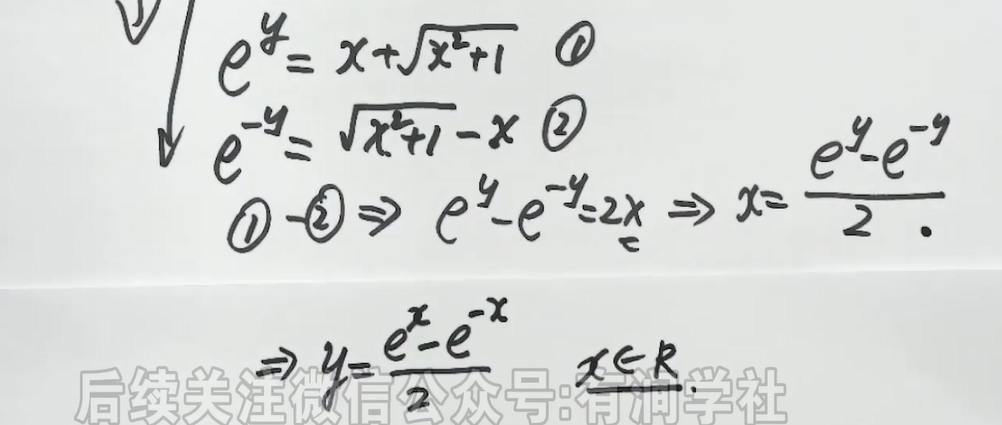 e^y = x+√(x²+1) ①
e^-y = √(x²+1) - x ②
①-② ⇒ e^y - e^-y = 2x ⇒ x = (e^y - e^-y)/2 .
⇒ y = (e^x - e^-x)/2 x∈R.
后续关注微信公众号:有润学社